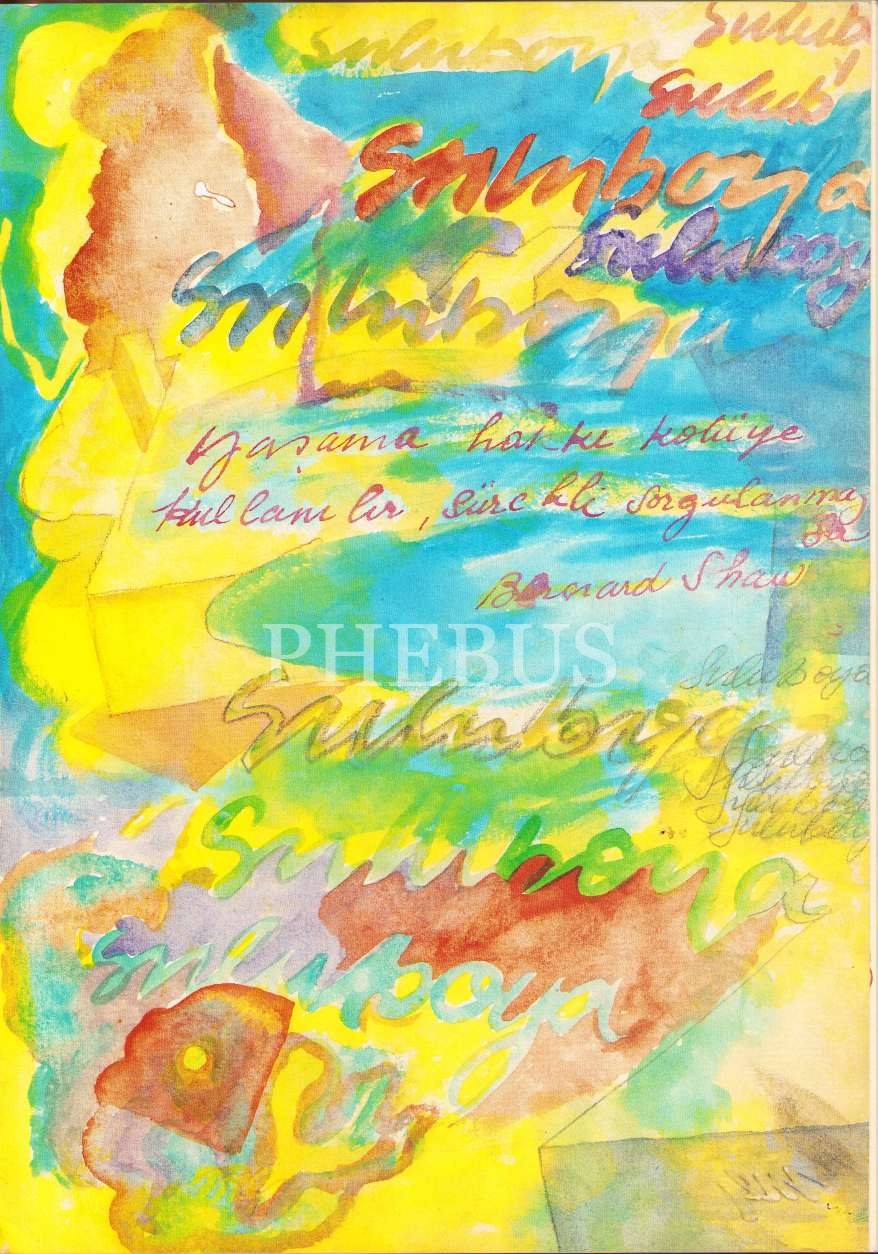 Suluboya
Sulub
Sulub
Suluboya
Suluboy
Suluboya
Yaşama hakkı kötüye
kullanılır, sürekli sorgulanmaz
sa
Bernard Shaw
PHEBUS
Suluboya
Suluboya
Suluboya
Suluboya
Suluboy
Suluboya
suluboya